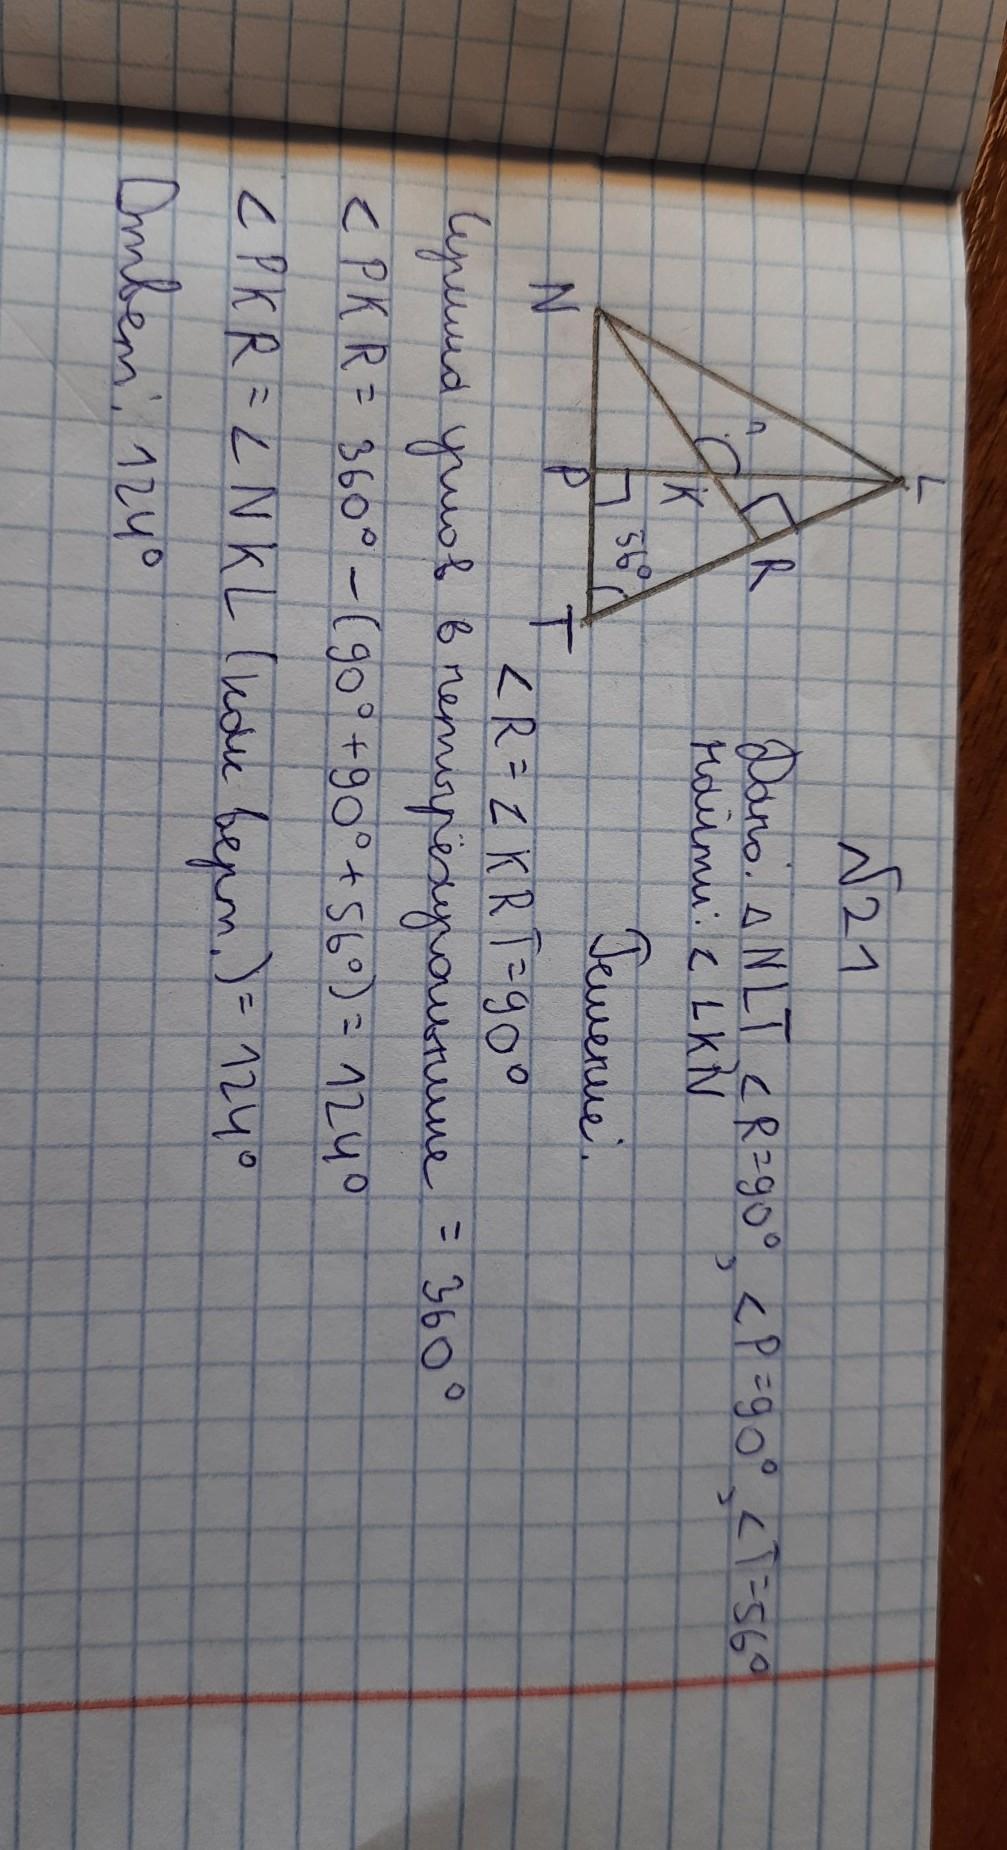 √21
Дано: △NLT <R=90°, <P=90°, <T=56°
найти: <LKN
L
R
K
56°
N
P
T
Решение:
<R=<KRT=90°
Сумма углов в четырёхугольнике = 360°
<PKR= 360°-(90°+90°+56°)=124°
<PKR=<NKL (как верт.)=124°
Ответ: 124°